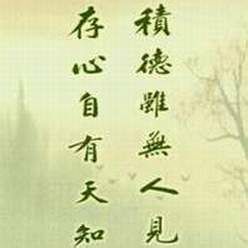 積德雖無人見
存心自有天知